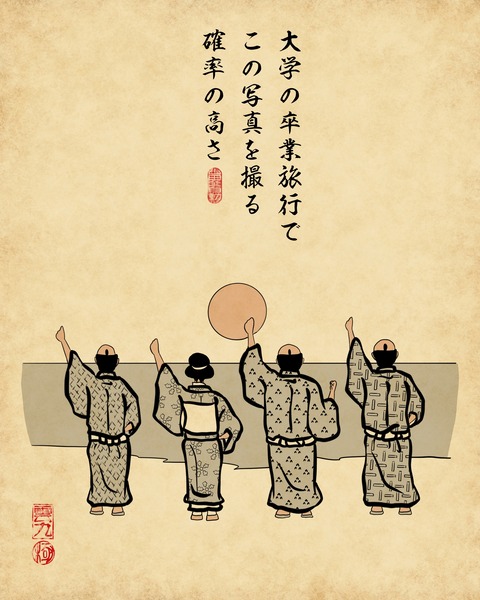 大学の卒業旅行で
この写真を撮る
確率の高さ